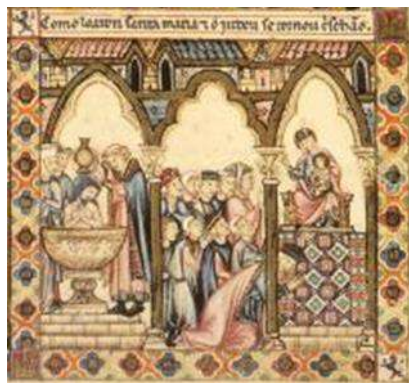 Como loaron santa maria ⁊ o judeu se tornou crischão.